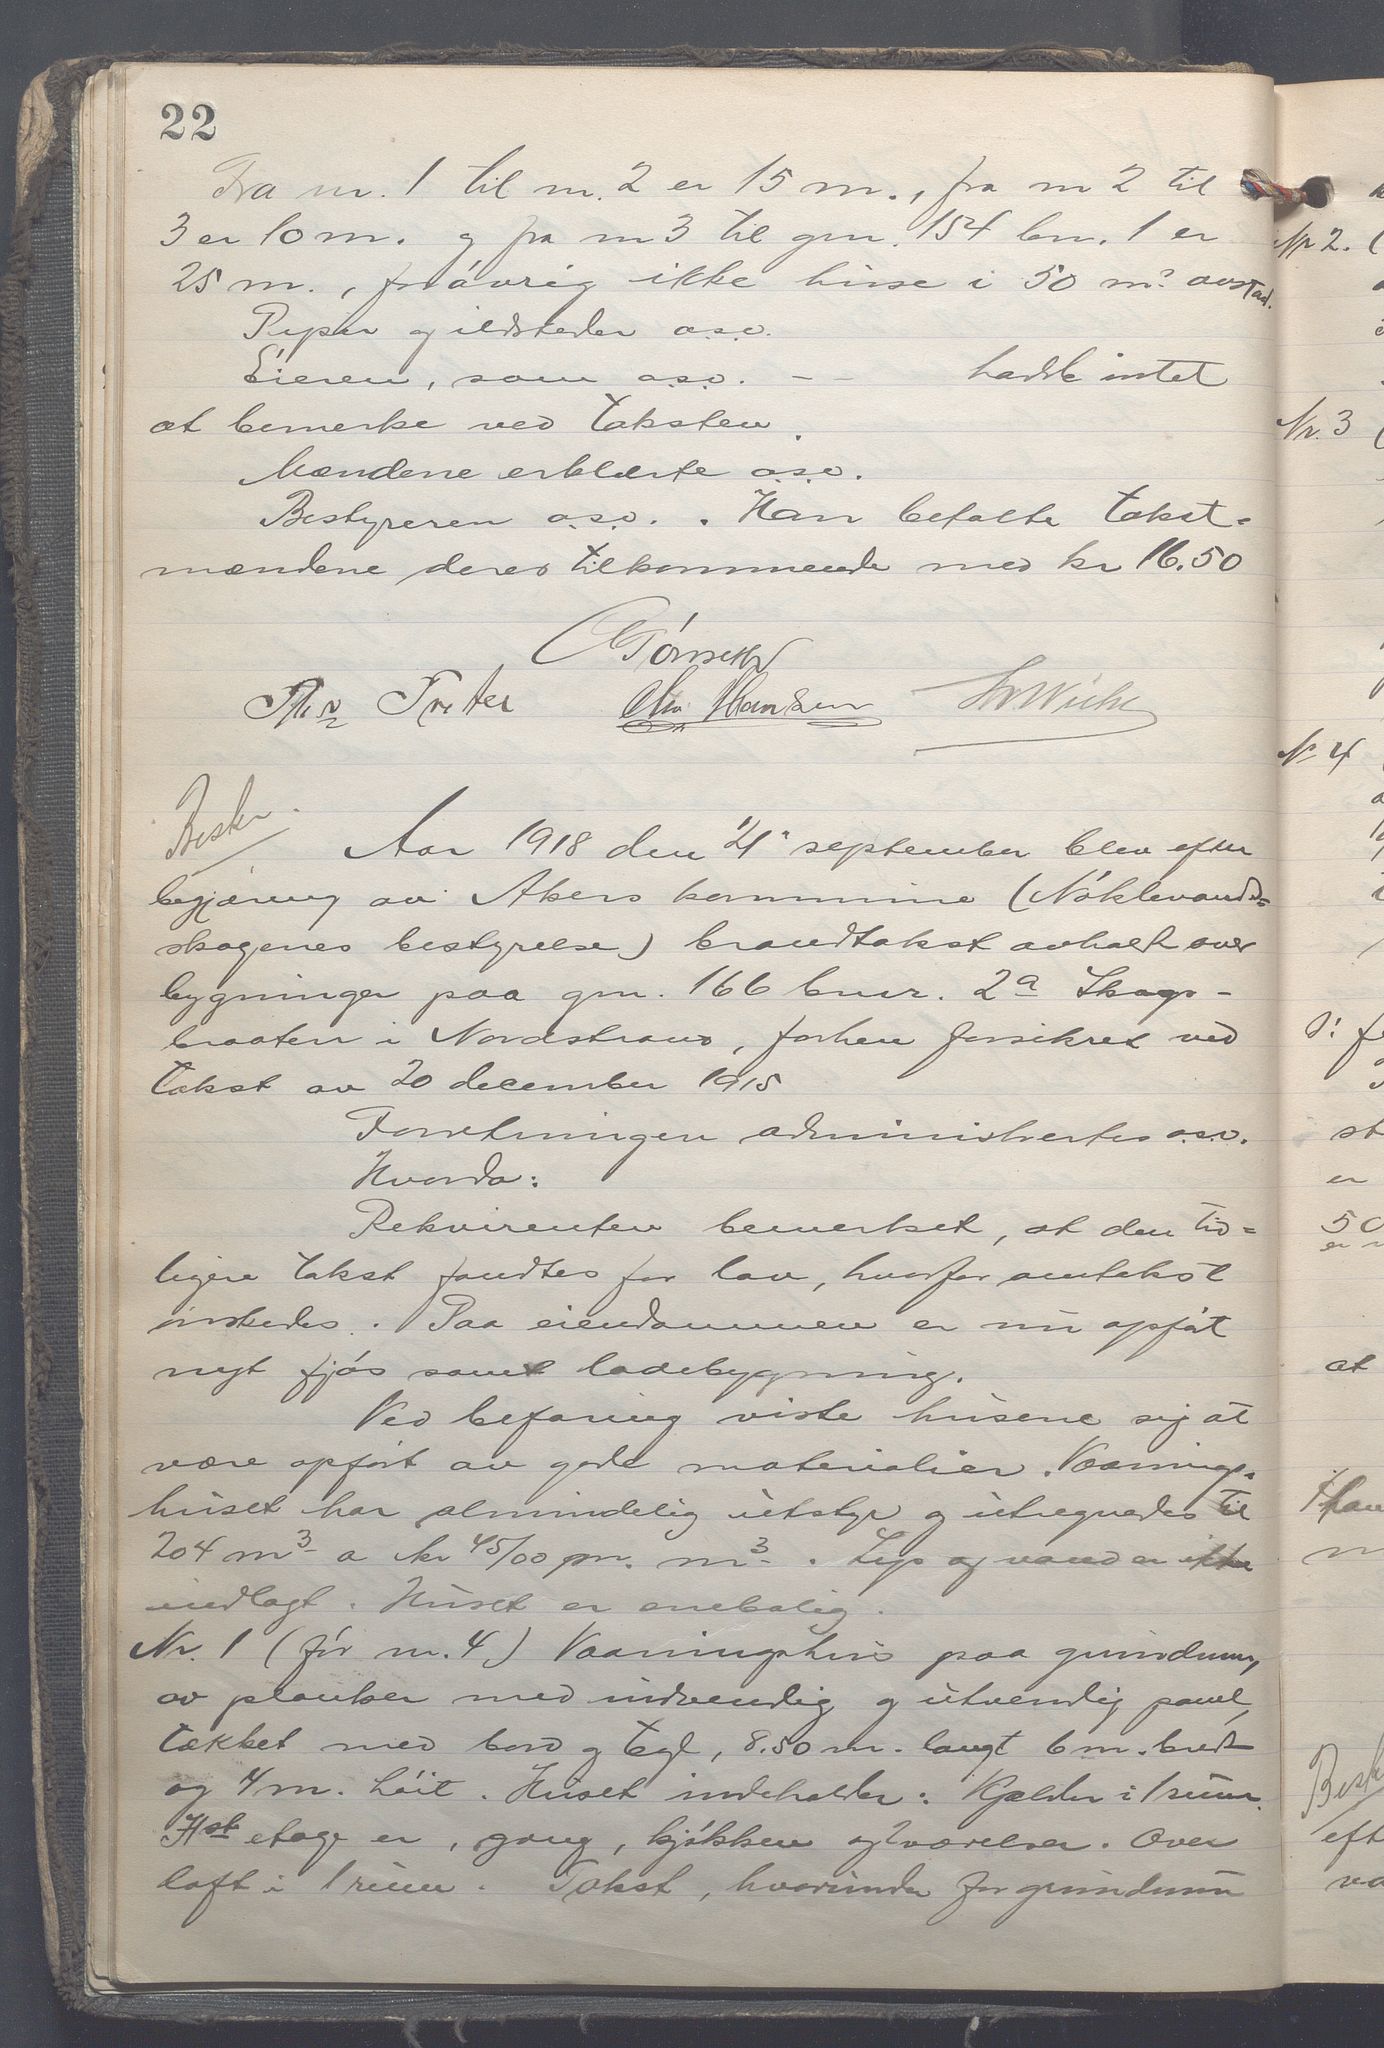 22
Fra nr. 1 til nr. 2 er 15 m., fra nr 2 til
3 er 10 m. og fra nr 3 til gnr. 154 bnr. 1 er
25 m., forøvrig ikke huse i 50 m? avstad.
Piper og ildsteder o.s.v.
Eieren, som o.s.v. - - hadde intet
at bemerke ved taksten.
Mændene erklærte o.s.v.
Bestyreren o.s.v. . Han befalte takst-
mændene deres tilkommende med kr 16.50
Tveter Chr. Hansen
Besk.
Aar 1918 den 21' september blev efter
begjæring av Akers kommune (Nøklevands=
skogenes bestyrelse) brandtakst avholdt over
bygninger paa gnr. 166 bnr. 2a Skogs-
braaten i Nordstrand, forhen forsikret ved
takst av 20 december 1915
Forretningen administrertes o.s.v.
Hvorda:
Rekvirenten bemerket, at den tid=
ligere takst fandtes for lav, hvorfor omtakst
ønskedes. Paa eiendommen er nu opført
nyt fjøs samt ladebygning.
Ved befaring viste husene sig at
være opført av gode materialier. Vaanings-
huset har almindelig utstyr og utregnedes til
204 m3 a kr 45/00 pr. m3. Lys og vand er ikke
indlagt. Huset er enebolig.
Nr. 1 (før nr. 4) Vaaningshus paa grundmur,
av planker med indvendig og utvendig panel,
tækket med bord og tegl, 8.50 m. langt 6 m. bredt
og 4 m. høit. Huset indeholder: Kjælder i 1 rum.
1st etage er, gang, kjøkken og 2 værelser. Over
loft i 1 rum. Takst, hvorunder for grundmur
Nr 2. (
Nr. 3 (
Nr 4
st
er
50
at
Besk
eft